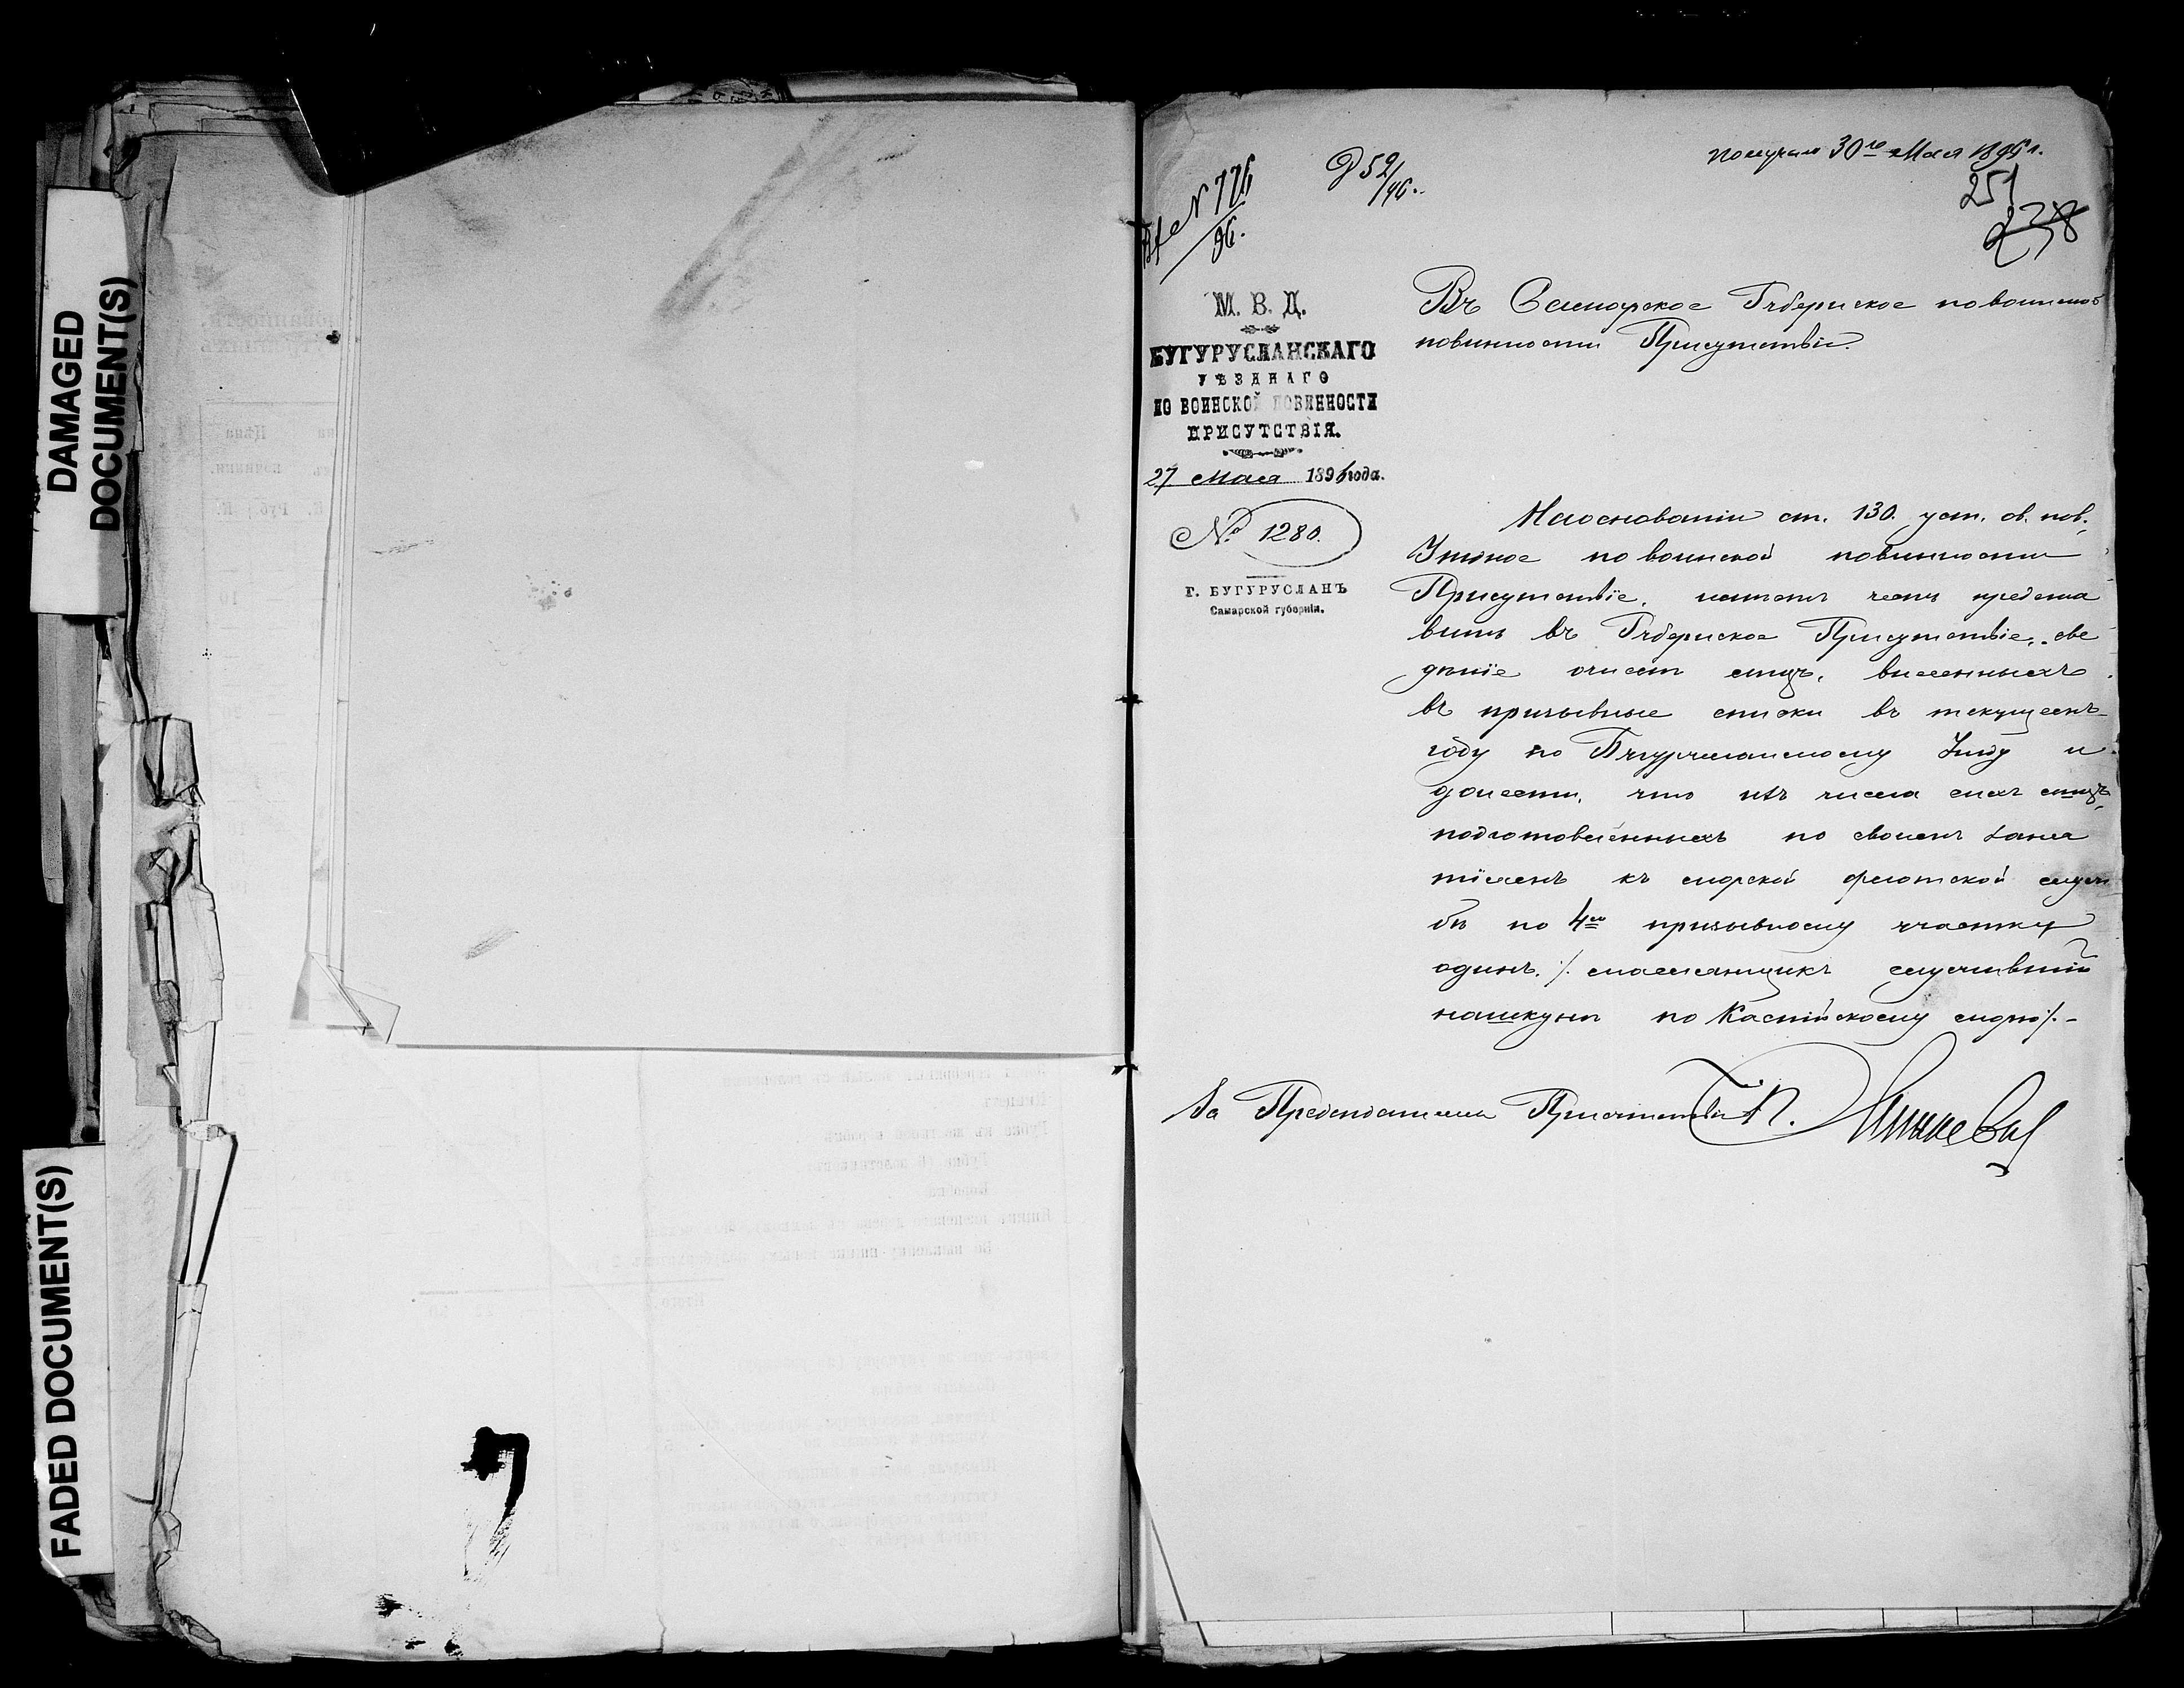 DAMAGED
DOCUMENT(S)
FADED DOCUMENT(S)
получено 30го Мая 1896 г.
Вх № 776/96.
Д 52/96.
251
238
М. В. Д.
БУГУРУСЛАНСКАГО
УѢЗДНАГО
ПО ВОИНСКОЙ ПОВИННОСТИ
ПРИСУТСТВІЯ.
27 Мая 1896 года.
№ 1280.
Г. БУГУРУСЛАНЪ
Самарской губерніи.
Въ Самарское Губернское по воинской
повинности Присутствіе.
На основаніи ст. 130. уст. о в. пов.,
Уѣздное по воинской повинности
Присутствіе, имѣетъ честь предста
вить въ Губернское Присутствіе, све
дѣніе о числѣ лицъ, внесенныхъ
въ призывные списки въ текущемъ
году по Бугурусланскому Уѣзду и
донести, что изъ числа сихъ лицъ,
подготовленныхъ по своимъ заня
тіямъ къ морской флотской служ
бѣ по 4му призывному участку
одинъ. /. смазчикъ служившій
на шкунѣ по Каспійскому морю /.-
За Предсѣдателя Присутствія